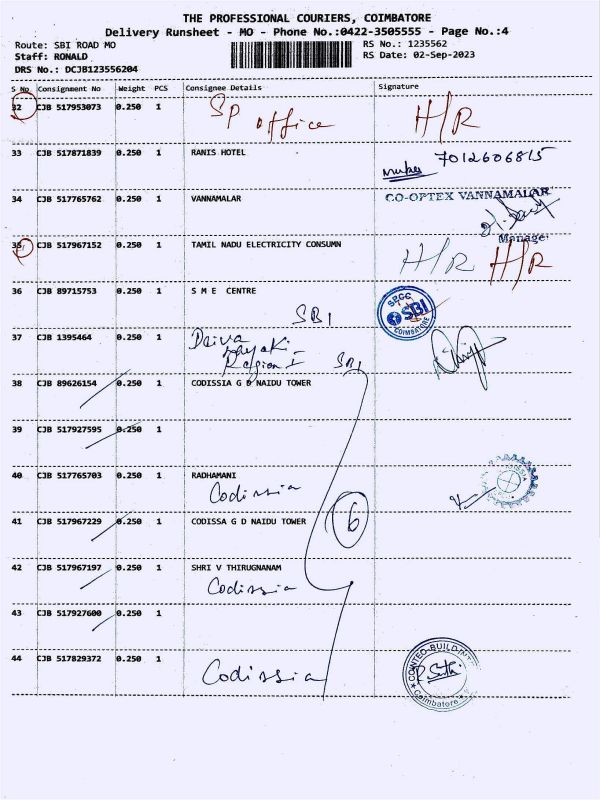 THE PROFESSIONAL COURIERS, COIMBATORE
Delivery Runsheet - MO - Phone No.:0422-3505555 - Page No.:4
Route: SBI ROAD MO
RS No.: 1235562
Staff: RONALD
RS Date: 02-Sep-2023
DRS No.: DCJB123556204
S No Consignment No Weight PCS Consignee Details Signature
32 CJB 517953073 0.250 1 SP office H/R
33 CJB 517871839 0.250 1 RANIS HOTEL 7012606815
34 CJB 517765762 0.250 1 VANNAMALAR CO-OPTEX VANNAMALAR
Manager
35 CJB 517967152 0.250 1 TAMIL NADU ELECTRICITY CONSUMN H/R H/R
36 CJB 89715753 0.250 1 S M E CENTRE SPCC SBI COIMBATORE
SBI
37 CJB 1395464 0.250 1 Deiva
Region I SBI
38 CJB 89626154 0.250 1 CODISSIA G D NAIDU TOWER
39 CJB 517927595 0.250 1
40 CJB 517765703 0.250 1 RADHAMANI
Codissia
41 CJB 517967229 0.250 1 CODISSA G D NAIDU TOWER 6
42 CJB 517967197 0.250 1 SHRI V THIRUGNANAM
Codissia
43 CJB 517927600 0.250 1
44 CJB 517829372 0.250 1 Codissia COINTEC-BUILD Coimbatore